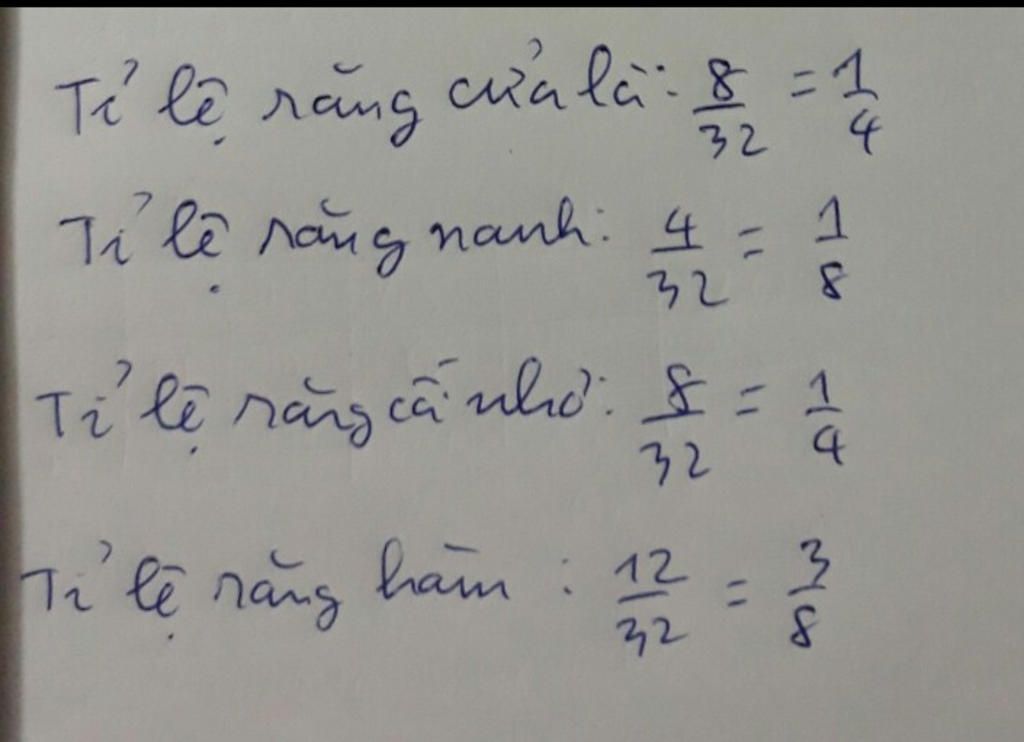 Tỉ lệ răng cửa là: 8/32 = 1/4
Tỉ lệ răng nanh: 4/32 = 1/8
Tỉ lệ răng cấ nhỏ: 8/32 = 1/4
Tỉ lệ răng hàm : 12/32 = 3/8